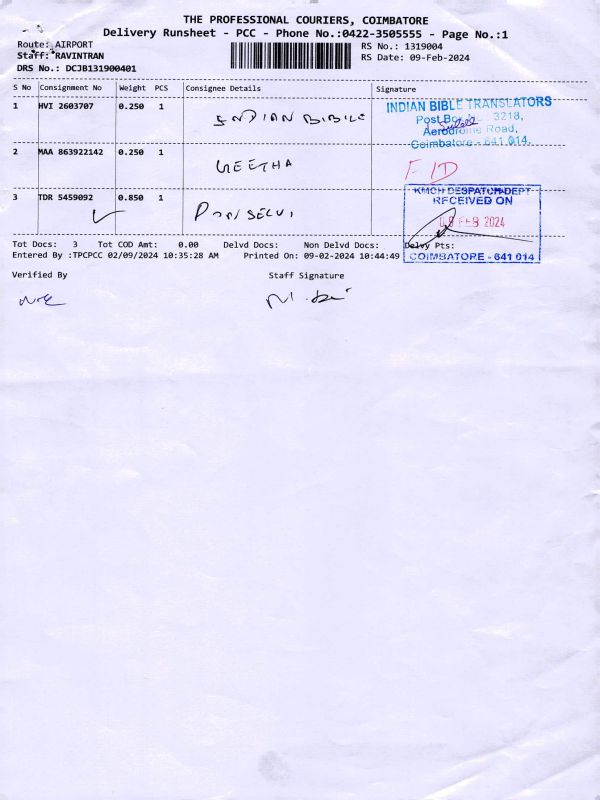 THE PROFESSIONAL COURIERS, COIMBATORE
Delivery Runsheet - PCC - Phone No.:0422-3505555 - Page No.:1
Route: AIRPORT
RS No.: 1319004
Staff: RAVINTRAN
RS Date: 09-Feb-2024
DRS No.: DCJB131900401
S No Consignment No Weight PCS Consignee Details Signature
1 HVI 2603707 0.250 1 INDIAN BIBILE
INDIAN BIBLE TRANSLATORS
Post Box 3218,
Aerodrome Road,
Coimbatore - 641 014.
2 MAA 863922142 0.250 1 GEETHA
3 TDR 5459092 0.850 1 PONSELVI
KMCH DESPATCH DEPT
RECEIVED ON
09 FEB 2024
COIMBATORE - 641 014
Tot Docs: 3 Tot COD Amt: 0.00 Delvd Docs: Non Delvd Docs: Delvy Pts:
Entered By :TPCPCC 02/09/2024 10:35:28 AM Printed On: 09-02-2024 10:44:49
Verified By Staff Signature